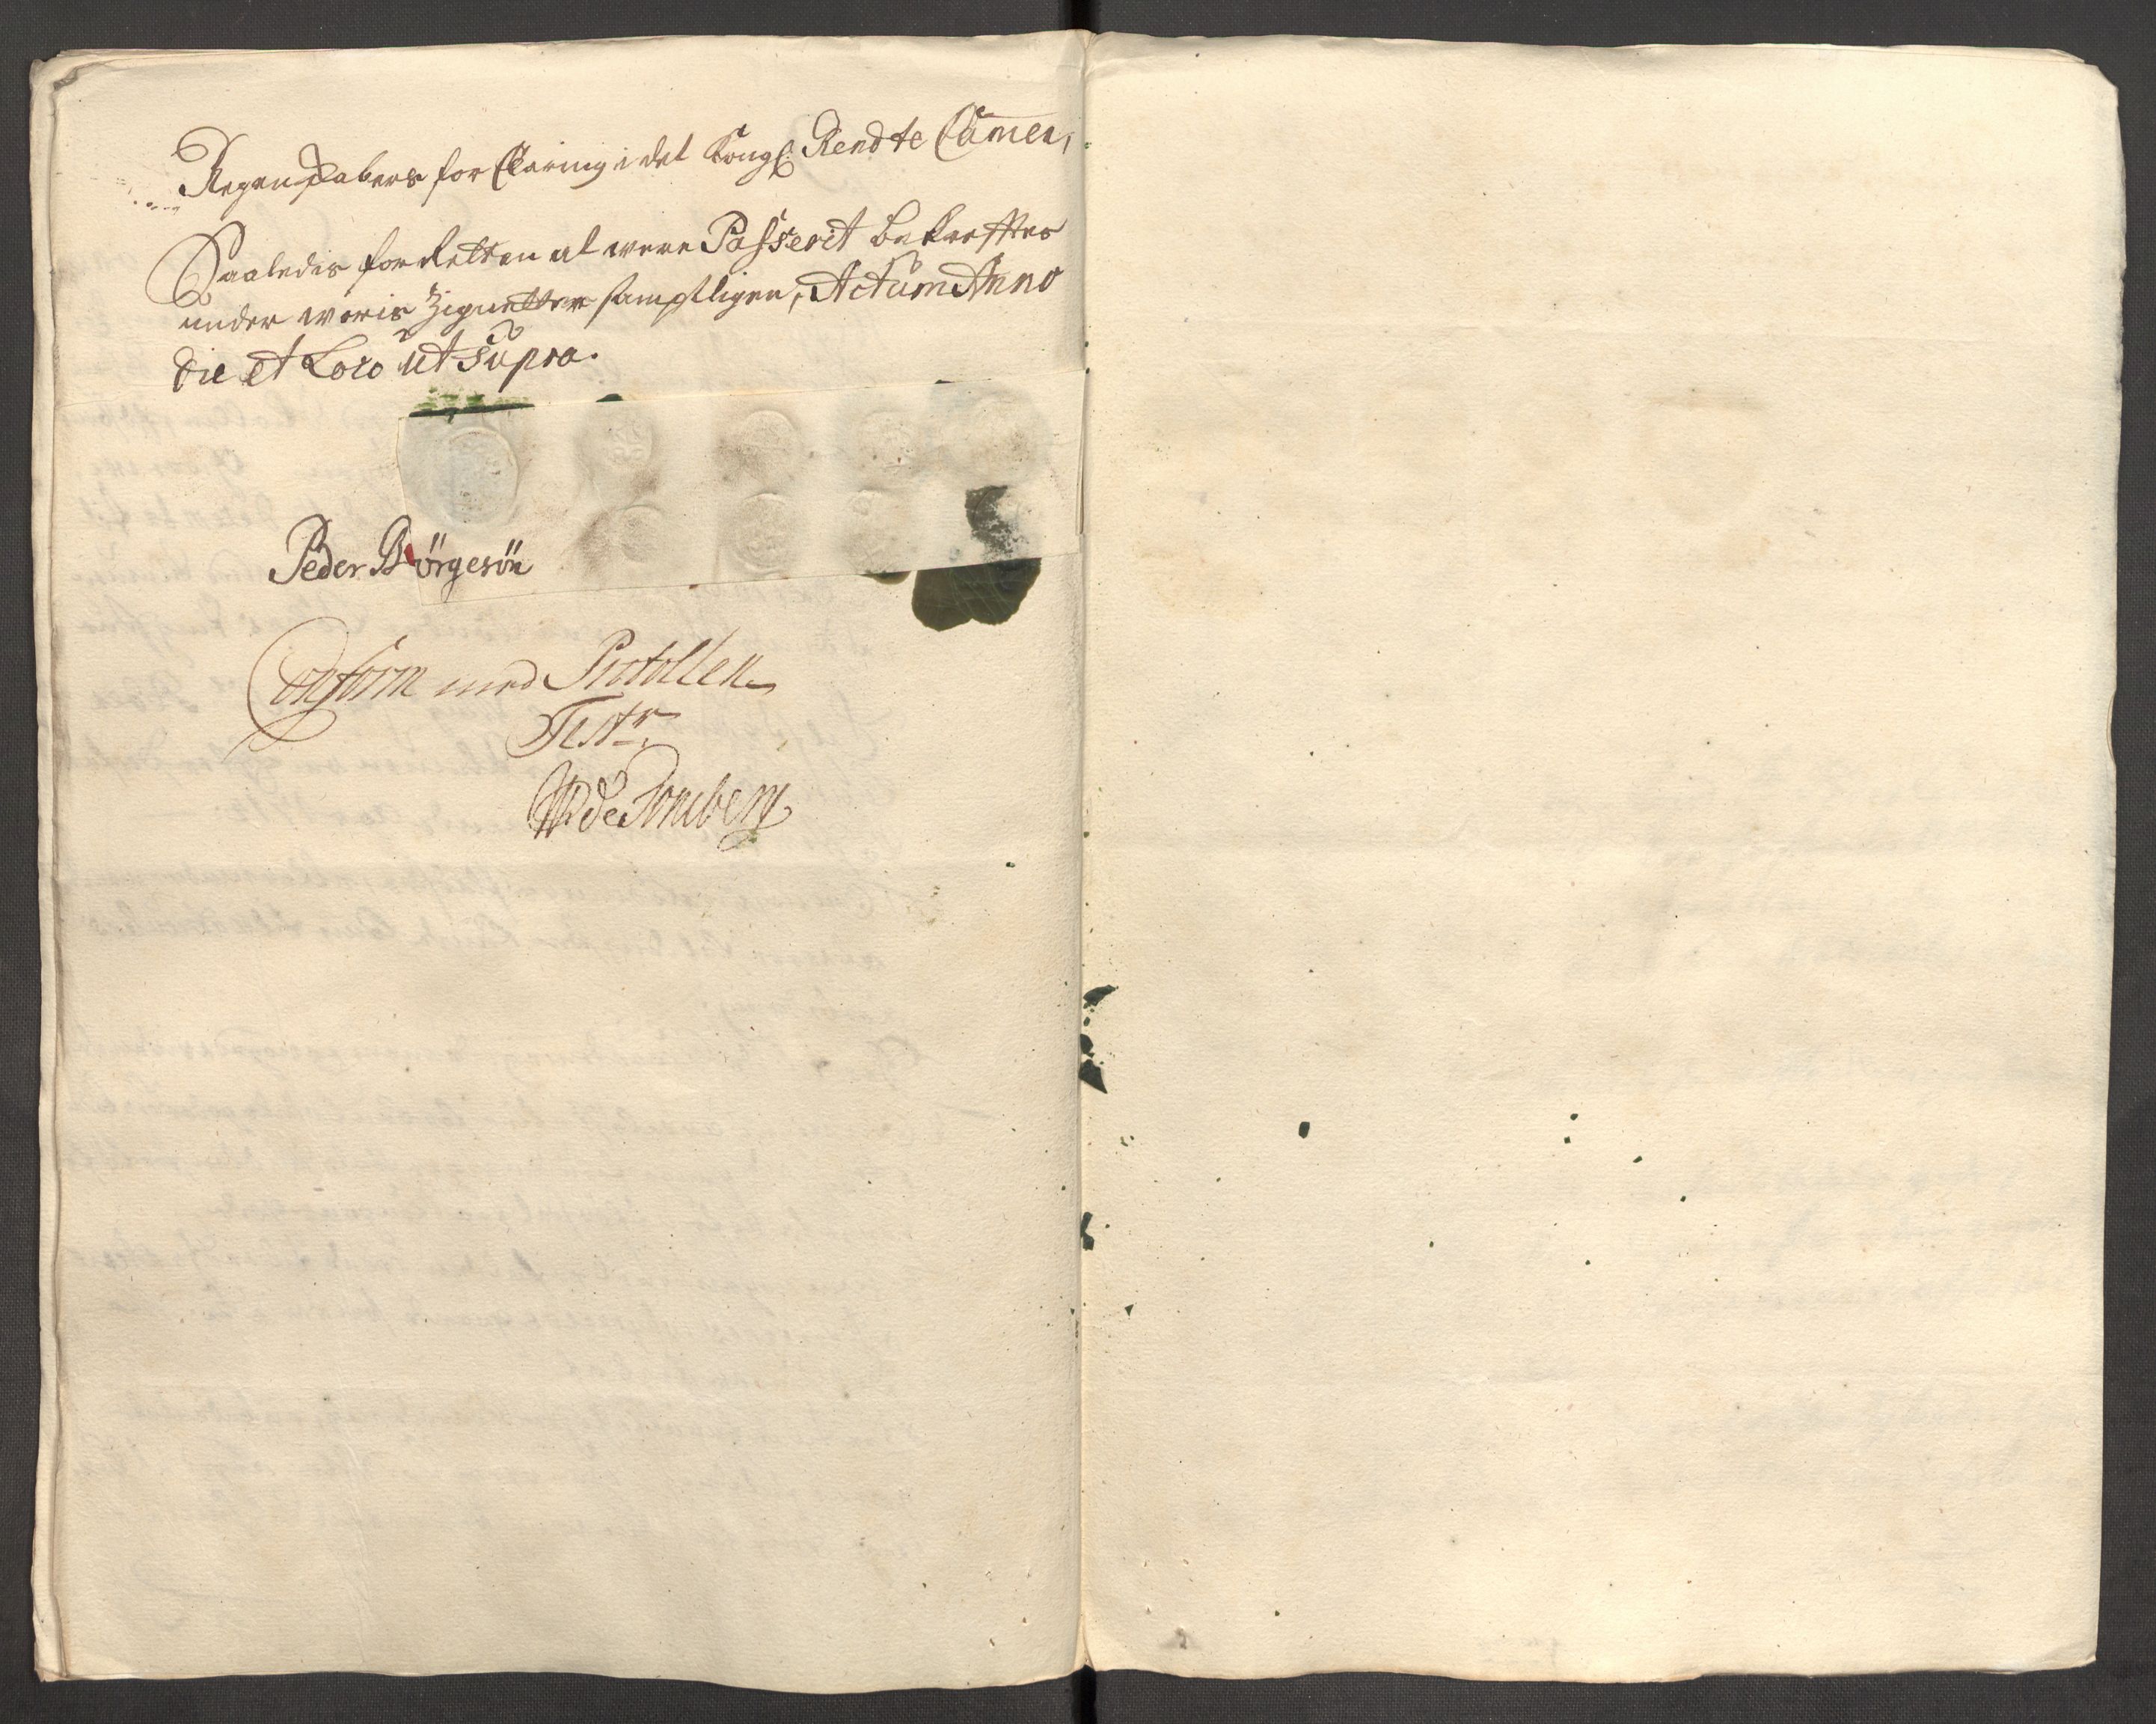 Regenskabers for Claring i det Kongl: Rendte Camer,
Saaledis for Retten at were Passerit bekreffter
under woris Zignetter samptligen, Actum Anno
die et Loco ut supra.
Peder Börgesön
Conform med Protollen
Test<sup>r</sup>